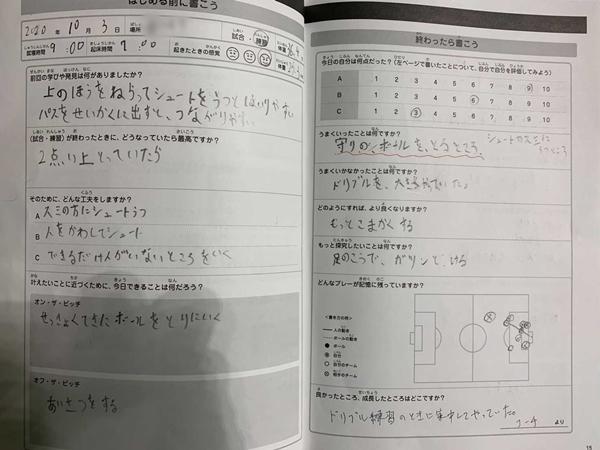 はじめる前に書こう
2020年 10月 3日 場所
就寝時間 9:00 起床時間 7:00 起きたときの感覚
試合・練習
前回の学びや発見は何がありましたか?
上のほうをねらってシュートをうつとはいりやすい
パスをせいかくに出すと、つながりやすい
(試合・練習)が終わったときに、どうなっていたら最高ですか?
2点い上とっていたら
そのために、どんな工夫をしますか?
A スミの方にシュートうつ
B 人をかわしてシュート
C できるだけ人がいないところをいく
叶えたいことに近づくために、今日できることは何だろう?
オン・ザ・ピッチ
せっきょくてきにボールをとりにいく
オフ・ザ・ピッチ
あいさつをする
終わったら書こう
今日の自分は何点だった?(左ページで書いたことについて、自分で自分を評価してみよう)
A 1 2 3 4 5 6 7 8 9 10
B 1 2 3 4 5 6 7 8 9 10
C 1 2 3 4 5 6 7 8 9 10
うまくいったことは何ですか?
守りのボールを、とうところ
シュートがスミに
うつところ
うまくいかなかったことは何ですか?
ドリブルを、
どのようにすれば、より良くなりますか?
もっとこまかくする
もっと探究したいことは何ですか?
足のこうで、ガツンと、ける
どんなプレーが記憶に残っていますか?
<書き方の例>
人の動き
ボールの動き
ボール
自分
自分のチーム
相手のチーム
良かったところ、成長したところはどこですか?
ドリブル練習のときに集中してやっていた。
コーチ より
15